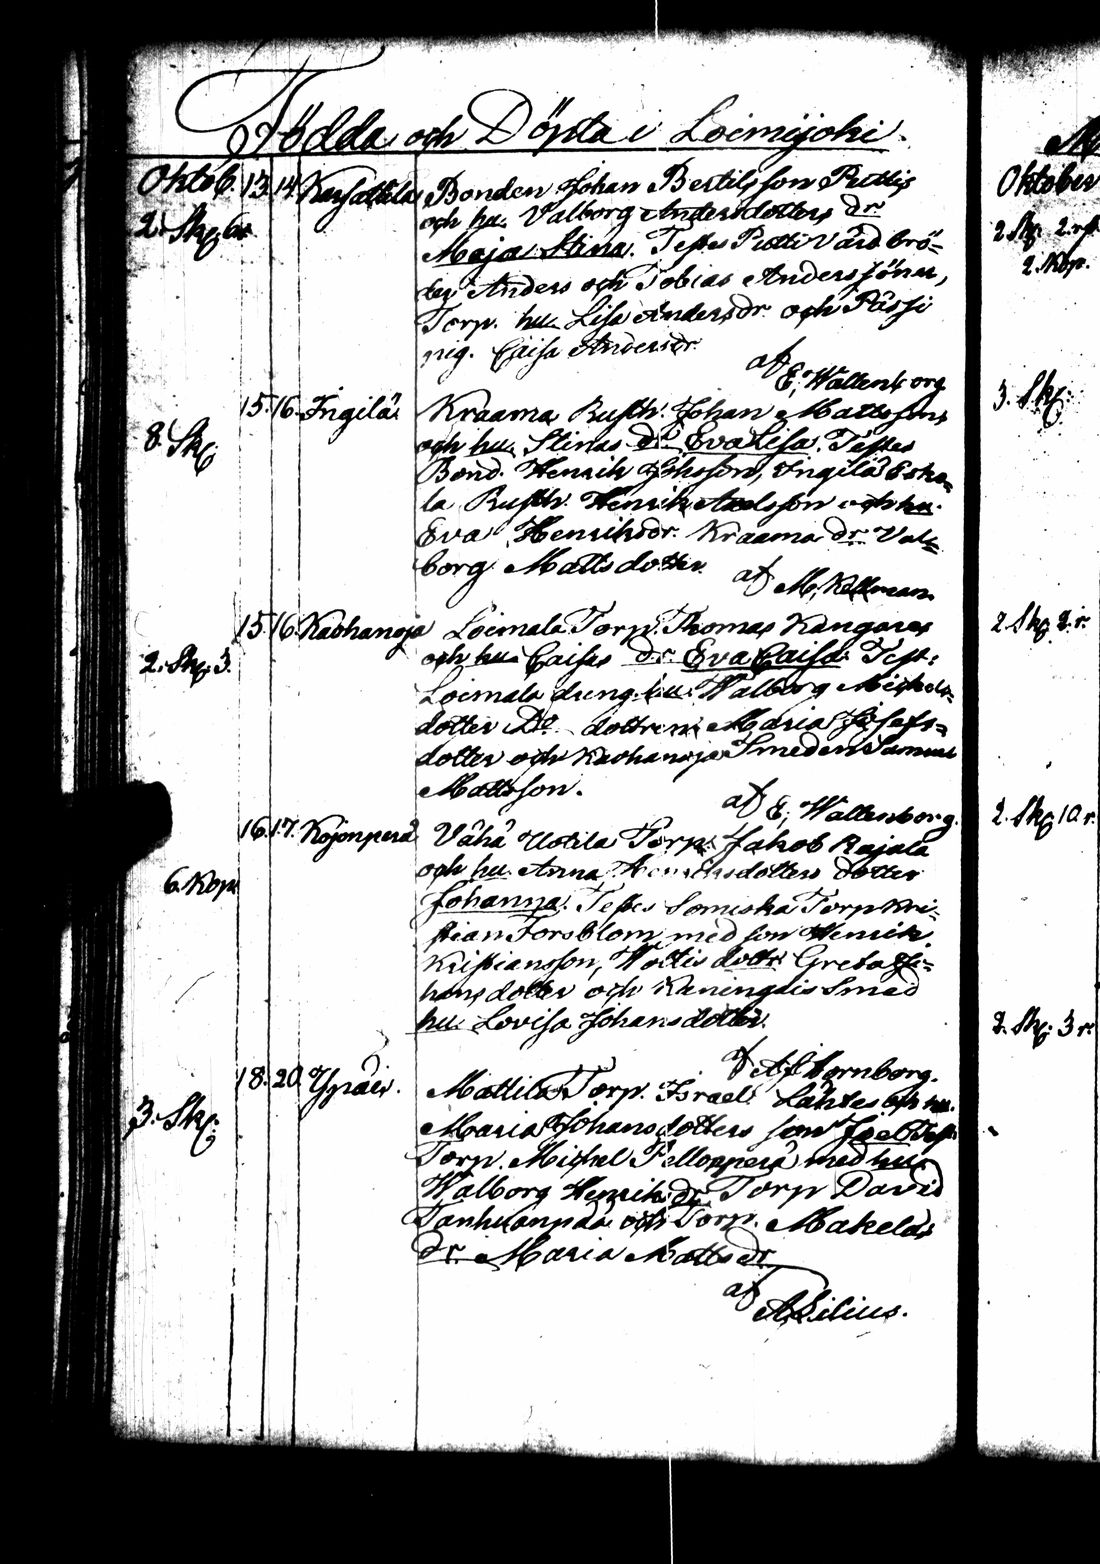 Födda och Döpta i Loimijoki.
Oktob. 13. 14. Karhattila Bonden Johan Bertilsson Puttis
2. Skp. 6 r. och hu. Valborg Andersdotters dr
Maja Stina. Testes Protti värd brö-
der Anders och Tobias Anderssöner,
Torp. hu. Lisa Andersdr och Pässi
pig. Caisa Andersdr.
af E. Wallenborg
15. 16. Ingiläs Kraama Rusth. Johan Mattssons
8. Skp och hu. Stinas dr Eva Lisa. Testes
Bond. Henrik Johsson, Ingilä Eska-
la Rusth. Henrik Axelsson och hu.
Eva Henriksdr. Kraama dr. Val-
borg Mattsdotter.
af M. Kellman.
15. 16. Kaohanoja Loimala Torp. Thomas Kangares
2. Skp. 3. och hu. Caises dr. Eva Caisa. Test:
Loimala dreng hu. Walborg Michels-
dotter Do dottren Maria Josefs-
dotter och Kaohanoja Smeden Samuel
Mattsson.
af E. Wallenborg.
16. 17. Kojonperä Vähä Uotila Torp. Jakob Rajala
6. Kop. och hu. Anna Henriksdotters dotter
Johanna. Testes Someska Torp Kri-
stian Forsblom med son Henrik
Kristiansson, Wottis dottr Greta Jo-
hans dotter och Keningeis Smed
hu. Lovisa Johansdotter.
af A. J. Hornborg.
18. 20. Ypäis. Mattila Torp. Israel Lähtes och hu.
3. Skp. Maria Johansdotters son Joel Test.
Torp. Michel Pelloperä med hu.
Walborg Henriksdr. Torp David
Tanhuanpää och Torp. Makeläs
dr. Maria Mattsdr
af A. Lilius.
Oktober
2 Skp 2. r
2. Kop.
3. Skp.
2 Skp. 2. r.
2. Skp 10 r.
2. Skp. 3 r.